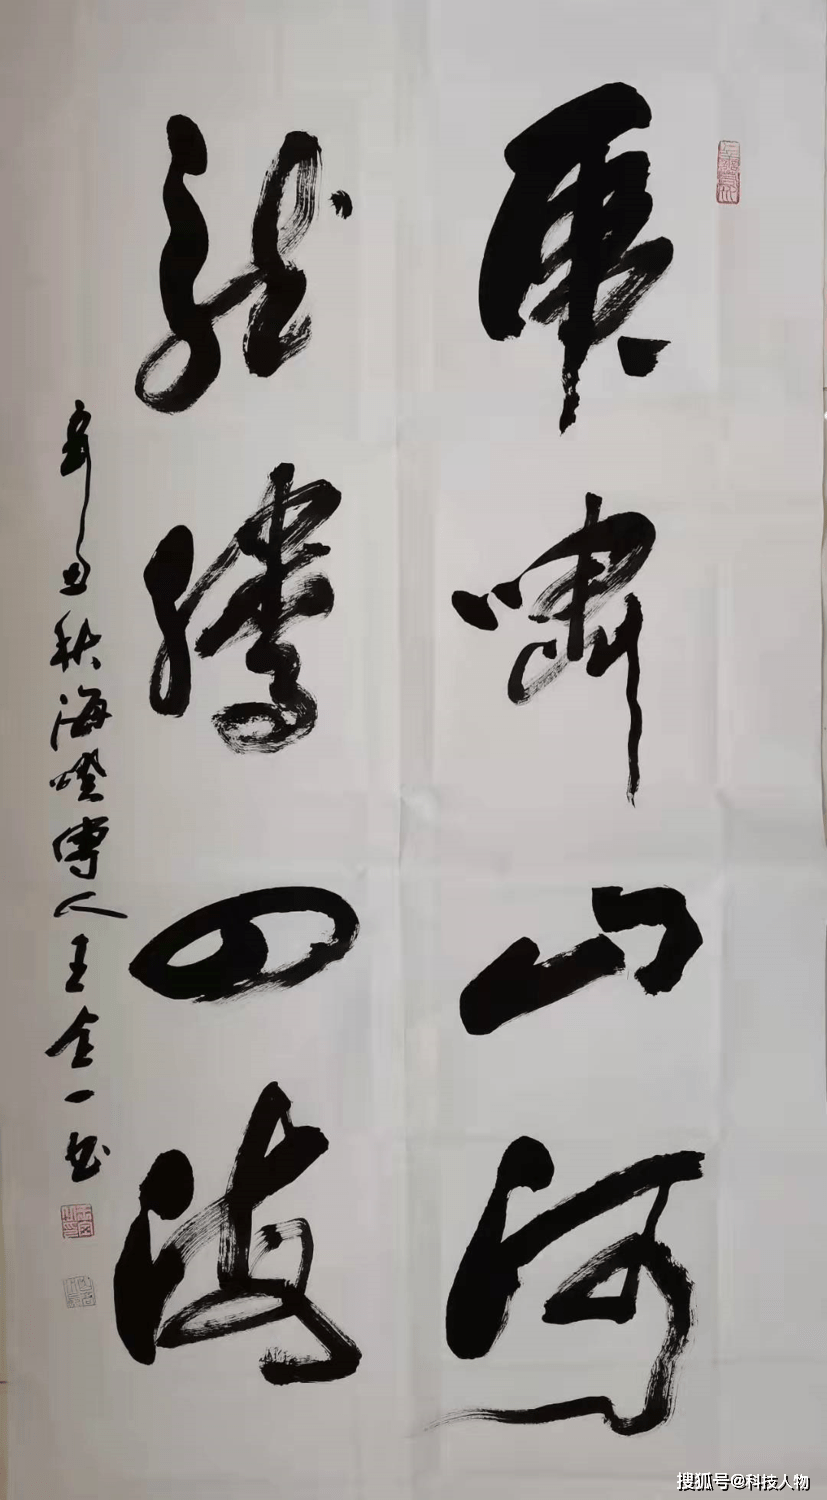 虎啸山河
龙腾四海
辛丑秋海灯传人王全一书
搜狐号@科技人物